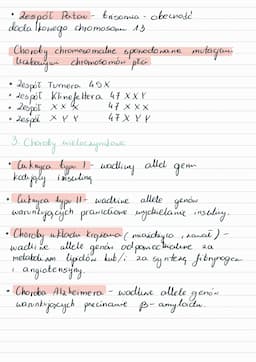 • Zespół Patau - trisomia - obecność
dodatkowego chromosomu 13
Choroby chromosomalne spowodowane mutacjami
liczbowymi chromosomów płci
• Zespół Turnera 45 X
• Zespół Klinefeltera 47 XXY
• Zespół XXX 47 XXX
• Zespół XYY 47 XYY
3. Choroby wieloczynnikowe
• Cukrzyca typu I - wadliwy allel genu
kodujący insulinę
• Cukrzyca typu II - wadliwe allele genów
warunkujących prawidłowe wydzielanie insuliny.
• Choroby układu krążenia (miażdżyca, zawał) -
wadliwe allele genów odpowiedzialne za
metabolizm lipidów lub/i za syntezę fibrynogenu
i angiotensyny.
• Choroba Alzheimera - wadliwe allele genów
warunkujących przecinanie β-amyloidu.